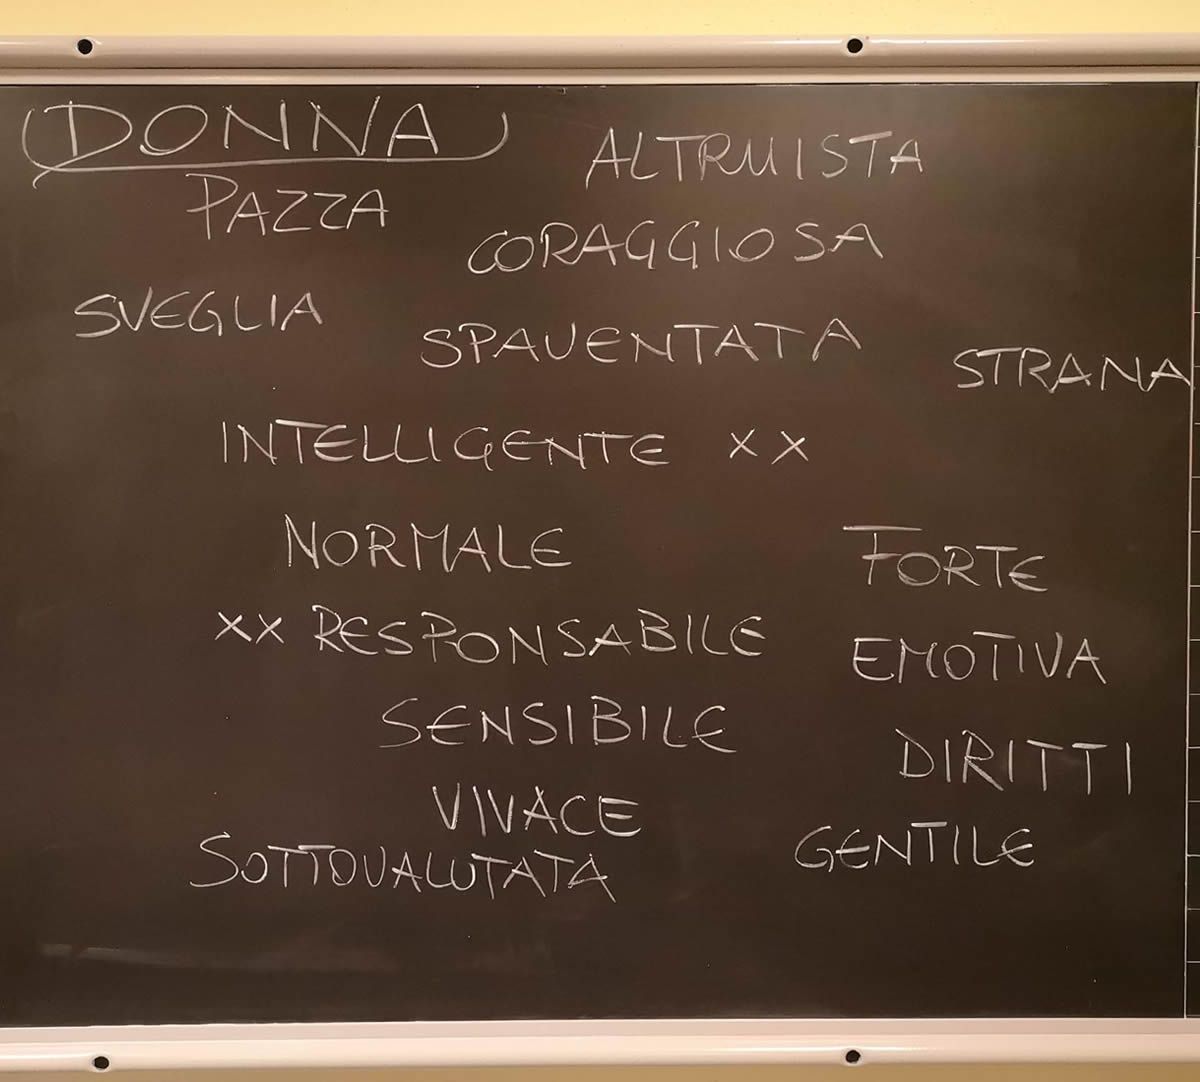 DONNA
ALTRUISTA
PAZZA
CORAGGIOSA
SVEGLIA
SPAVENTATA
STRANA
INTELLIGENTE XX
NORMALE
FORTE
XX RESPONSABILE
EMOTIVA
SENSIBILE
DIRITTI
VIVACE
GENTILE
SOTTOVALUTATA